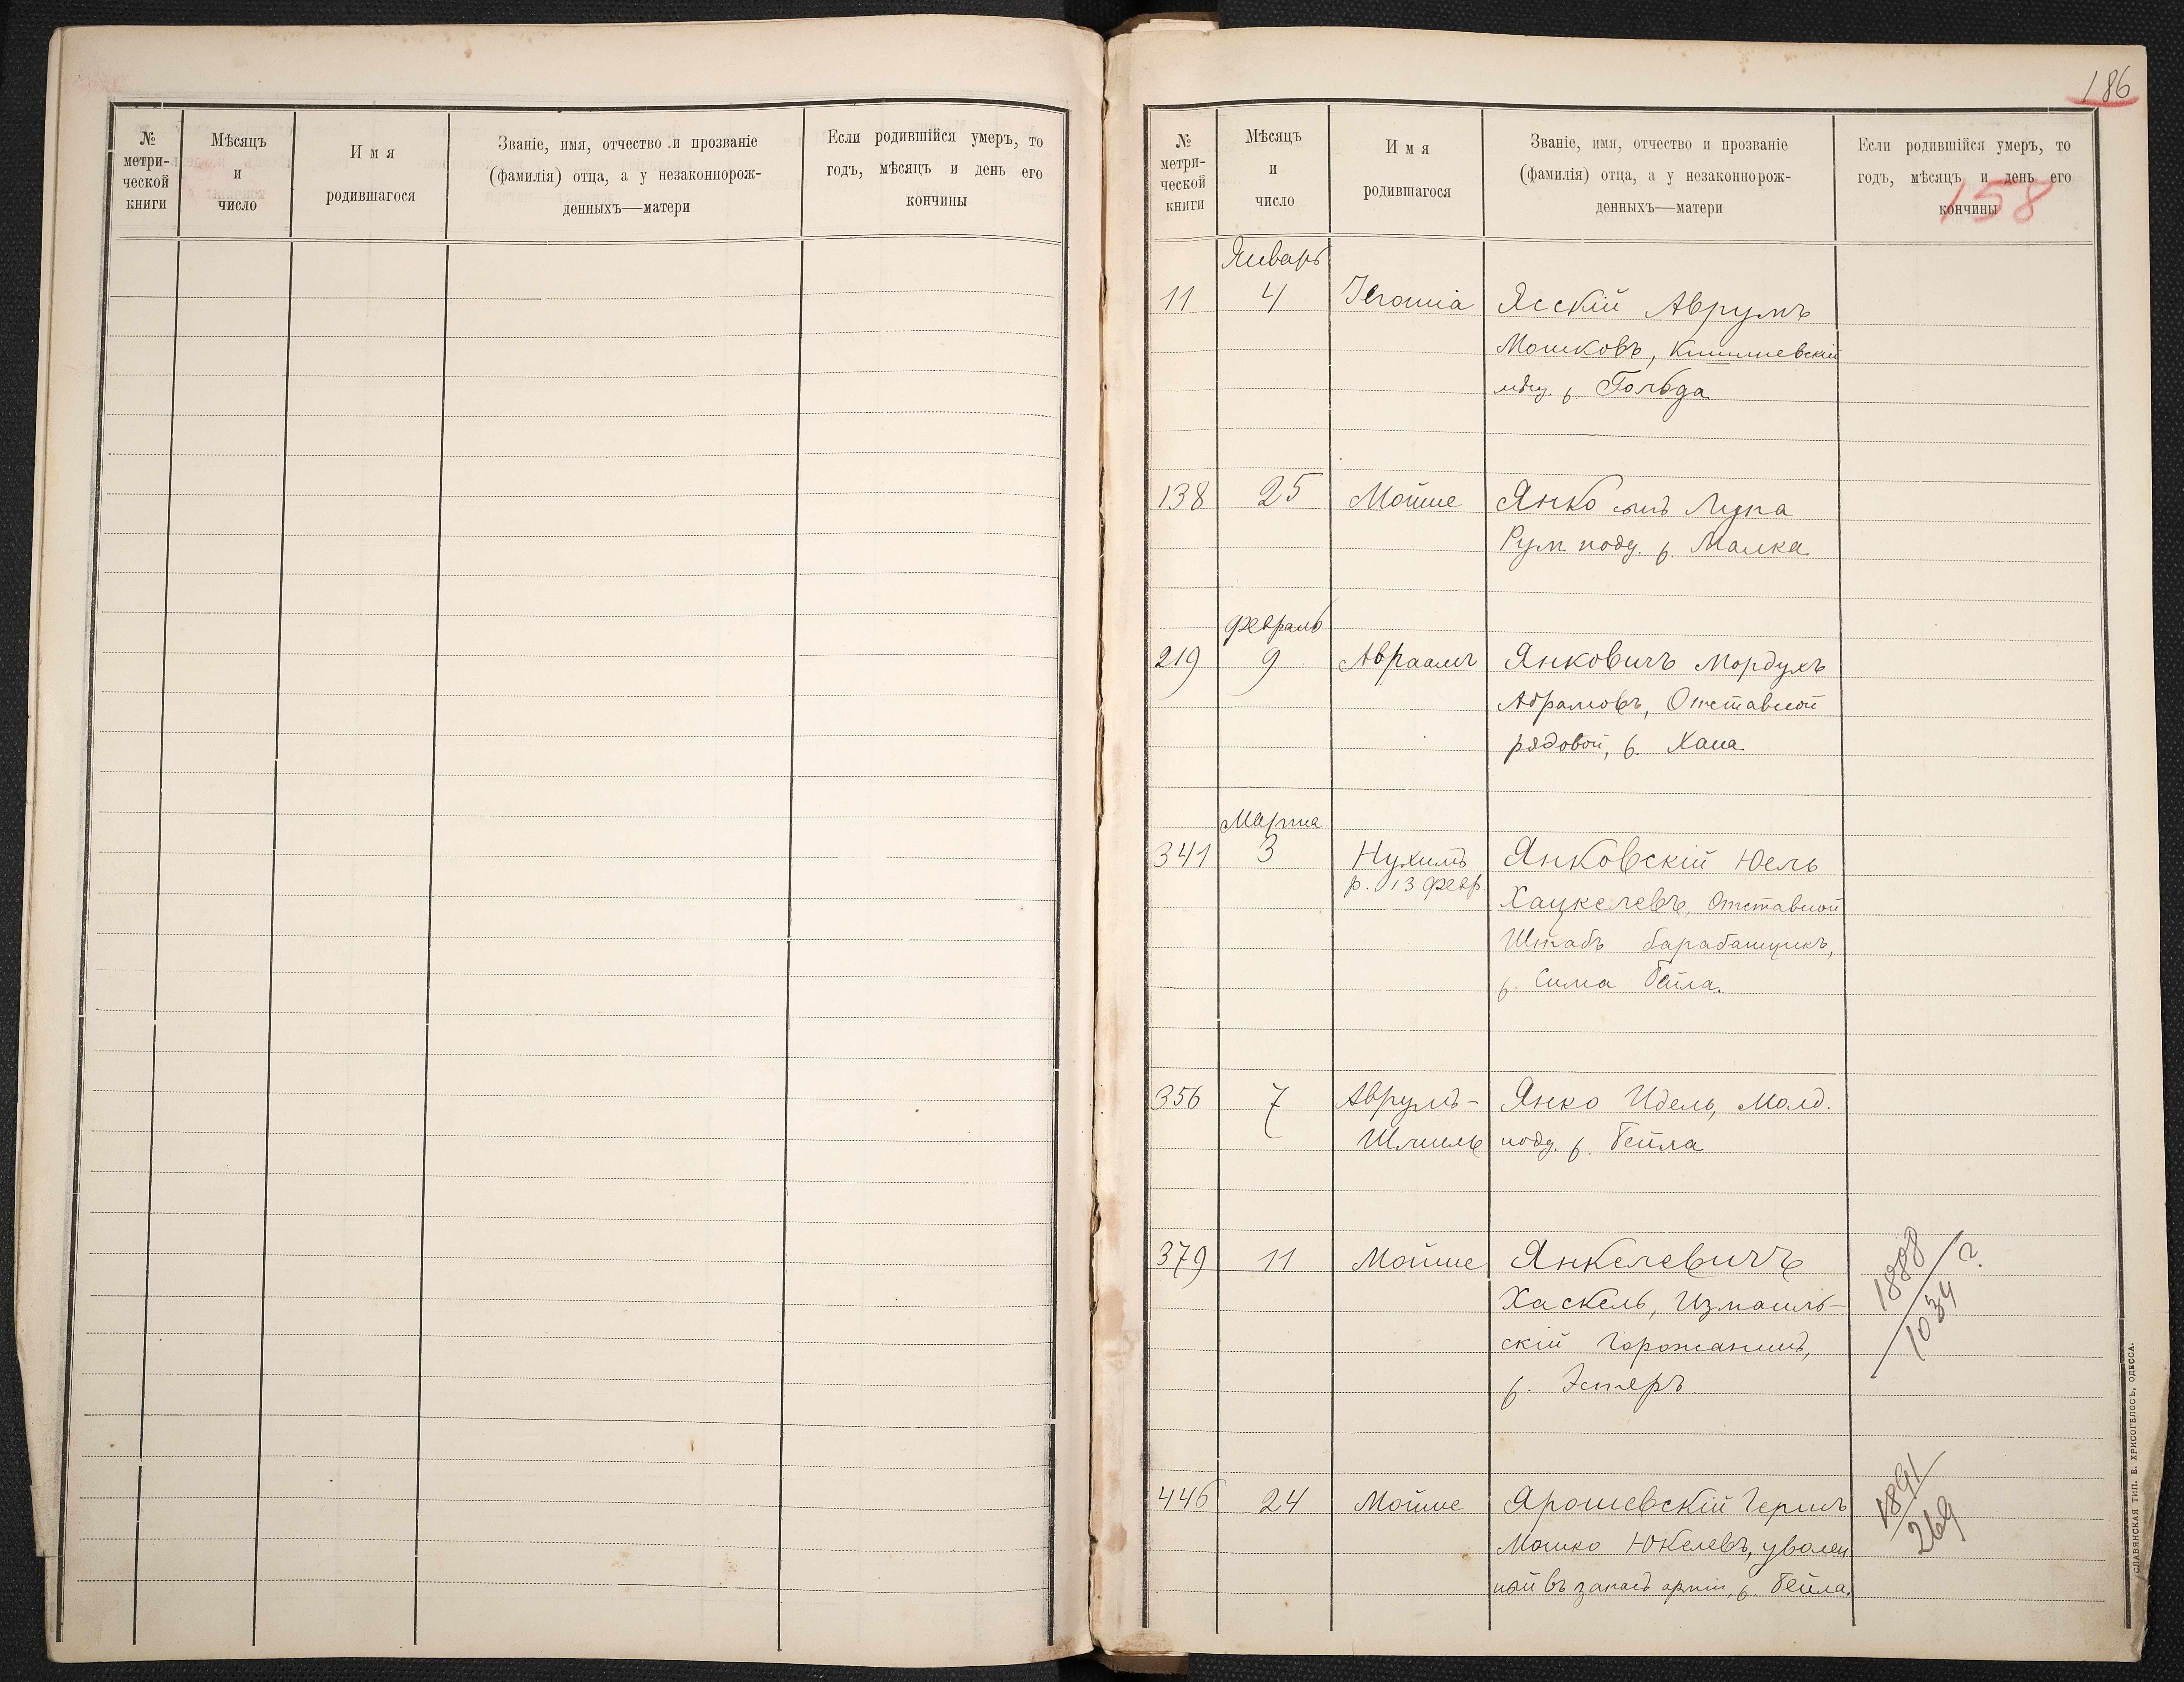 № метри-ческой книги
Мѣсяцъ и число
Имя родившагося
Званіе, имя, отчество и прозваніе
(фамилія) отца, а у незаконнорож-
денныхъ—матери
Если родившійся умеръ, то
годъ, мѣсяцъ и день его
кончины
186
№ метри-ческой книги
Мѣсяцъ и число
Имя родившагося
Званіе, имя, отчество и прозваніе
(фамилія) отца, а у незаконнорож-
денныхъ—матери
Если родившійся умеръ, то
годъ, мѣсяцъ и день его
кончины
158
Январь
11 4 Ясскій Аврумъ
Мошковъ, Кишиневскій
мѣщ. ж. Гольда
138 25 Мойше Янко сынъ Лупа
Рум подд. ж. Малка
Февраль
219 9 Авраамъ Янковичъ Мордухъ
Абрамовъ, Отставной
рядовой, ж. Хана
Марта
341 3 Нухимъ Янковскій Юель
р. 13 февр.
Хацкелевъ, Отставной
Штабъ барабанщикъ,
ж. Сима Бейла.
356 7 Аврумъ- Янко Идель, Молд.
Шмиль подд. ж. Бейла
379 11 Мойше Янкелевичъ
Хаскель, Измаиль-
скій Горожанинъ,
ж. Эстеръ
1888/1034 ?
446 24 Мойше Ярошевскій Гершъ
Мошко Юкелевъ, уволен
ный въ запасъ арміи, ж. Бейла.
1891/269
СЛАВЯНСКАЯ ТИП. Е. ХРИСОГЕЛОСЪ, ОДЕССА.